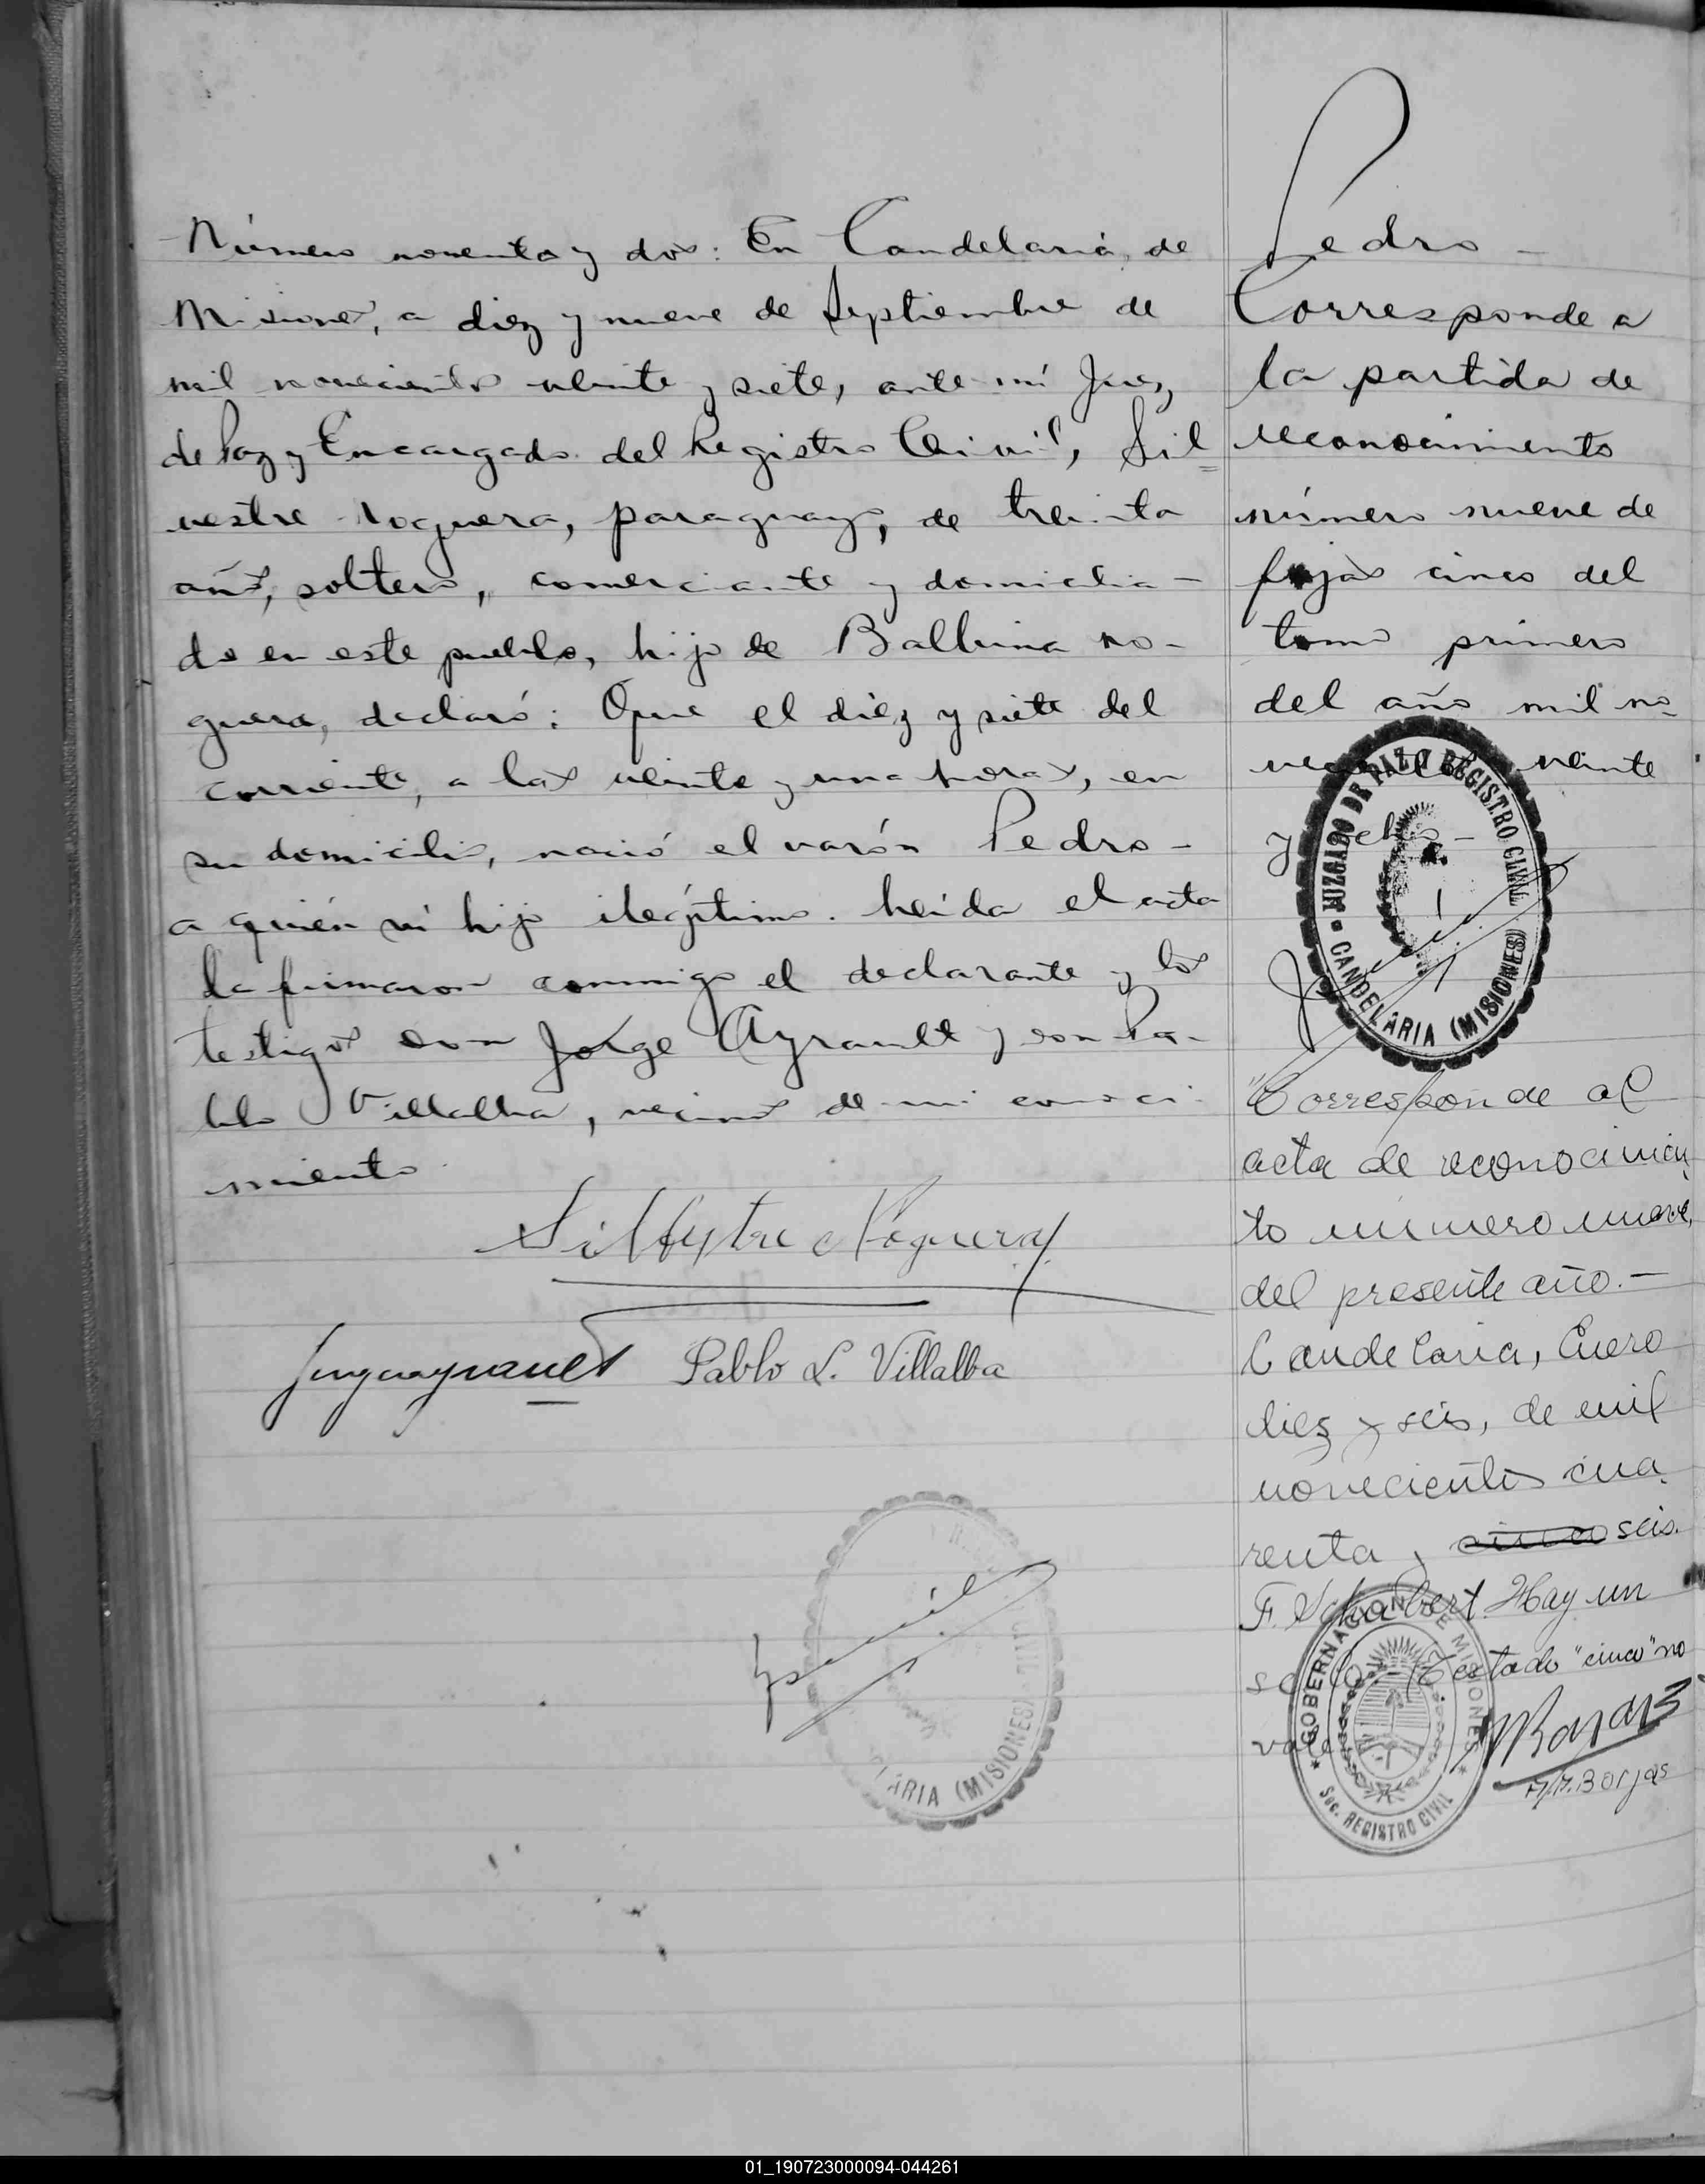 Número noventa y dos: En Candelaria, de
Misiones, a diez y nueve de Septiembre de
mil novecientos veinte y siete, ante mí Juez
de Paz y Encargado del Registro Civil, Sil=
vestre Noguera, paraguayo, de treinta
años, soltero, comerciante y domicilia-
do en este pueblo, hijo de Balbina No-
guera, declaró: Que el diez y siete del
corriente, a las veinte y una horas, en
su domicilio, nació el varón Pedro-
a quién hijo ilegítimo. Leída el acta
la firmaron conmigo el declarante y los
testigos don Jorge Ayrault y don Pa-
blo Villalba, vecinos de mi conoci-
miento
Silbestre Noguera
Pablo L. Villalba
ARIA (MISIONES)
Pedro-
Corresponde a
la partida de
reconocimiento
número nueve de
fojas cinco del
tomo primero
del año mil no-
vecientos veinte
y ocho-
JUZGADO DE PAZ Y REGISTRO CIVIL
CANDELARIA (MISIONES)
"Corresponde al
acta de reconocimien-
to número nueve,
del presente año.-
Candelaria, Enero
diez y seis, de mil
novecientos cua-
renta y cinco seis.
F. Schubert. Hay un
sello. Testado "cinco" no
vale
GOBERNACION DE MISIONES
Sec. REGISTRO CIVIL
Borjas
01_190723000094-044261